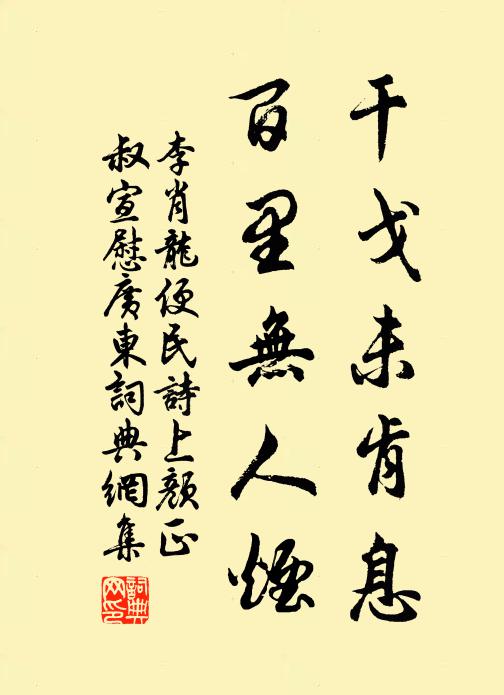 干戈未肯息
百里無人煙
李肖龍便民詩上顏正
叔宣慰廣東詞典網集
詞典網印